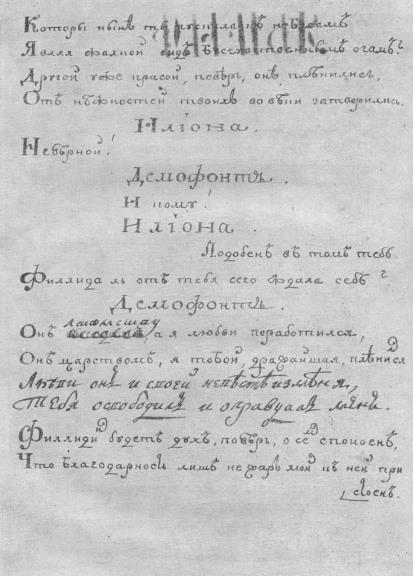 Которы нынѣ ты
Являя жалной видъ очамъ?
Другой уже красой, повѣрь, онѣ плѣнились,
Отъ нѣжностей твоихъ во вѣки затворились.
Иліона.
Невѣрной!
Демофонтъ.
И кому!
Иліона.
Подобенъ въ томъ тебѣ.
Филлида ль отъ тебя сего ждала себѣ?
Демофонтъ.
Онъ а я любви поработился,
Онъ царствомъ, я тобой, дражайшая, плѣнился
и своей невѣстѣ измѣня,
Тебя освободилъ и оправдалъ меня.
Филлидинъ будетъ духъ, повѣрь, о семъ спокоенъ,
Что благодарность лишь не жаръ мой къ ней при
своенъ.